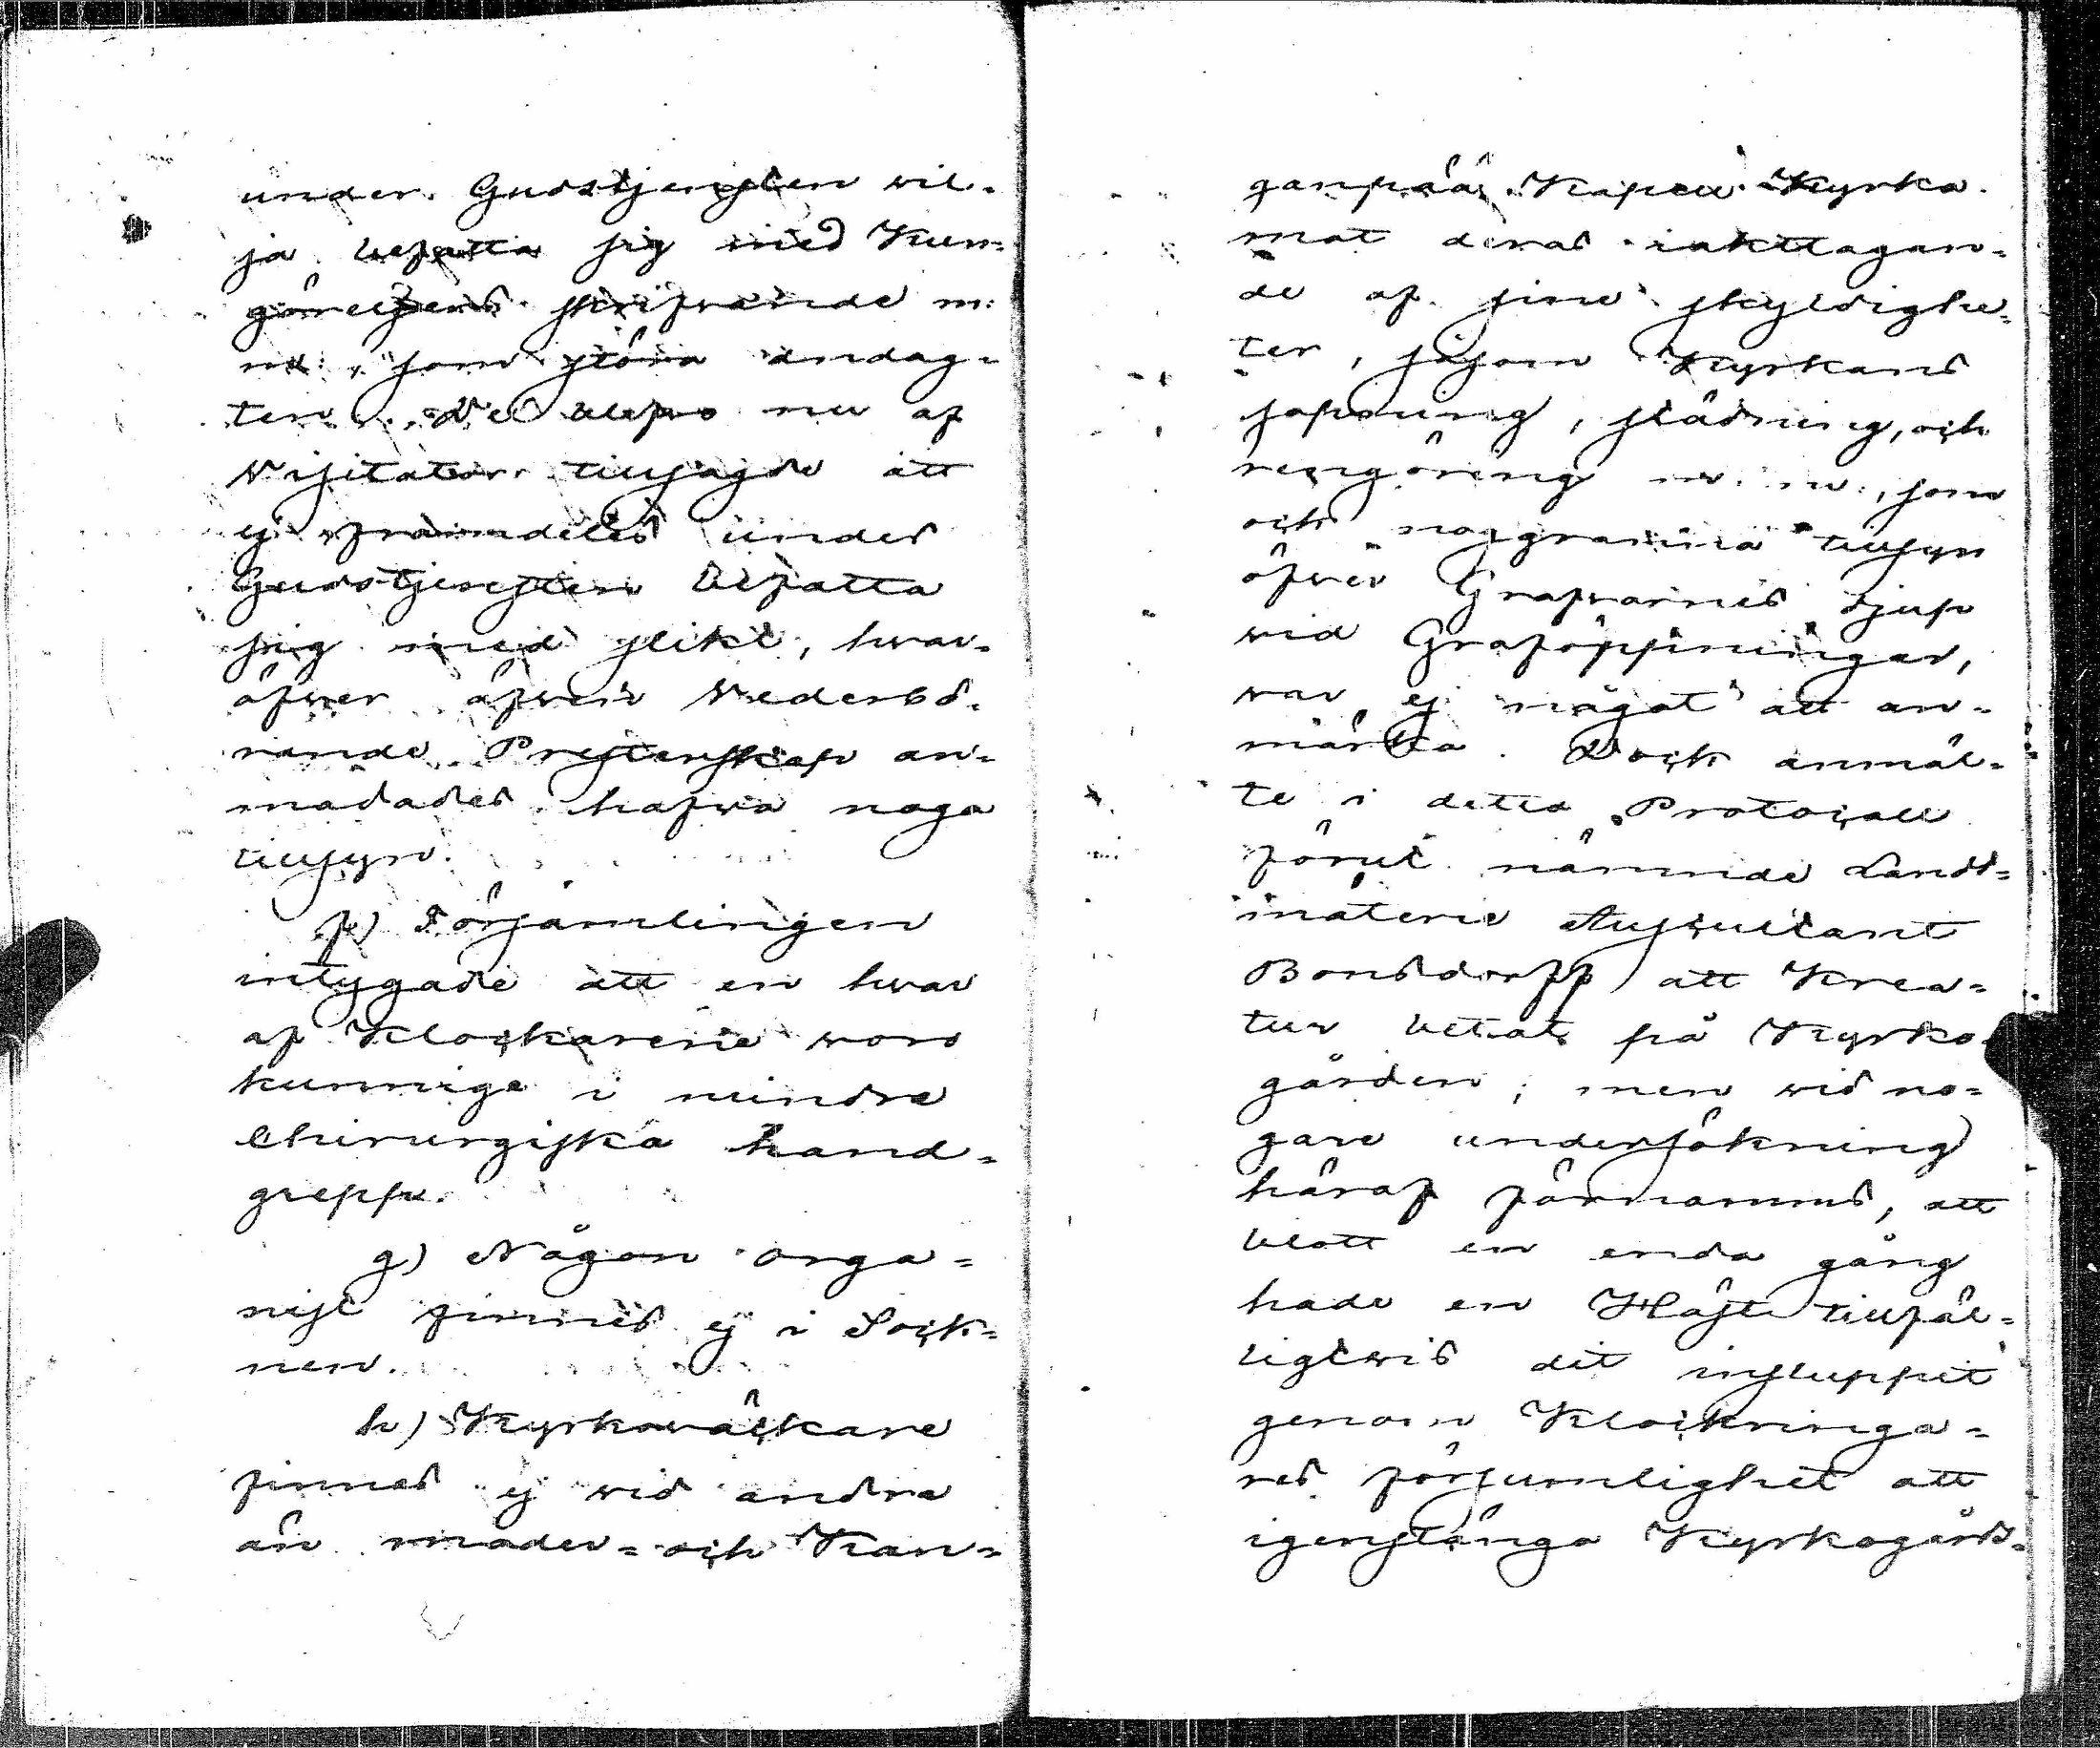 under Gudstjensten wil=
ja befatta sig med Kun=
görelsens skrifwande m:
m:, som störa andag=
ten. De blefwo nu af
Visitator tillsagde att
ej framdeles under
Gudstjensten befatta
sig med slikt, hwar=
öfwer äfwen Wederbö=
rande Presterskap an=
modades hafwa noga
tillsyn.
f) Församlingen
intygade att en hwar
af Klockarene woro
kunnige i mindre
Chirurgiska hand=
grepp.
g) Någon orga=
nist finnes ej i Sock=
nen.
h) Kyrkowäckare
finnes ej wid andra
än moder= och Kan=
ganpää Kapell Kyrka.
mot deras iakttagan=
de af sine skyldighe=
ter, såsom Kyrkans
sopning, städning, och
rengöring m. m:, som
och noggranna tillsyn
öfwer Grafwarnes djup
wid Graföppningar,
war ej något att an=
märka. Dock anmäl=
te i detta Protocoll
förut nämnde Landt=
mäterie Auscultant
Bonsdorff att Krea=
tur betat på Kyrko
gården; men wid no=
gare undersökning
häraf förnamms, att
blott en enda gång
hade en Häst tillfäl=
ligtwis dit insluppit
genom Klockringa=
res försumlighet att
igenstänga Kyrkogårds=